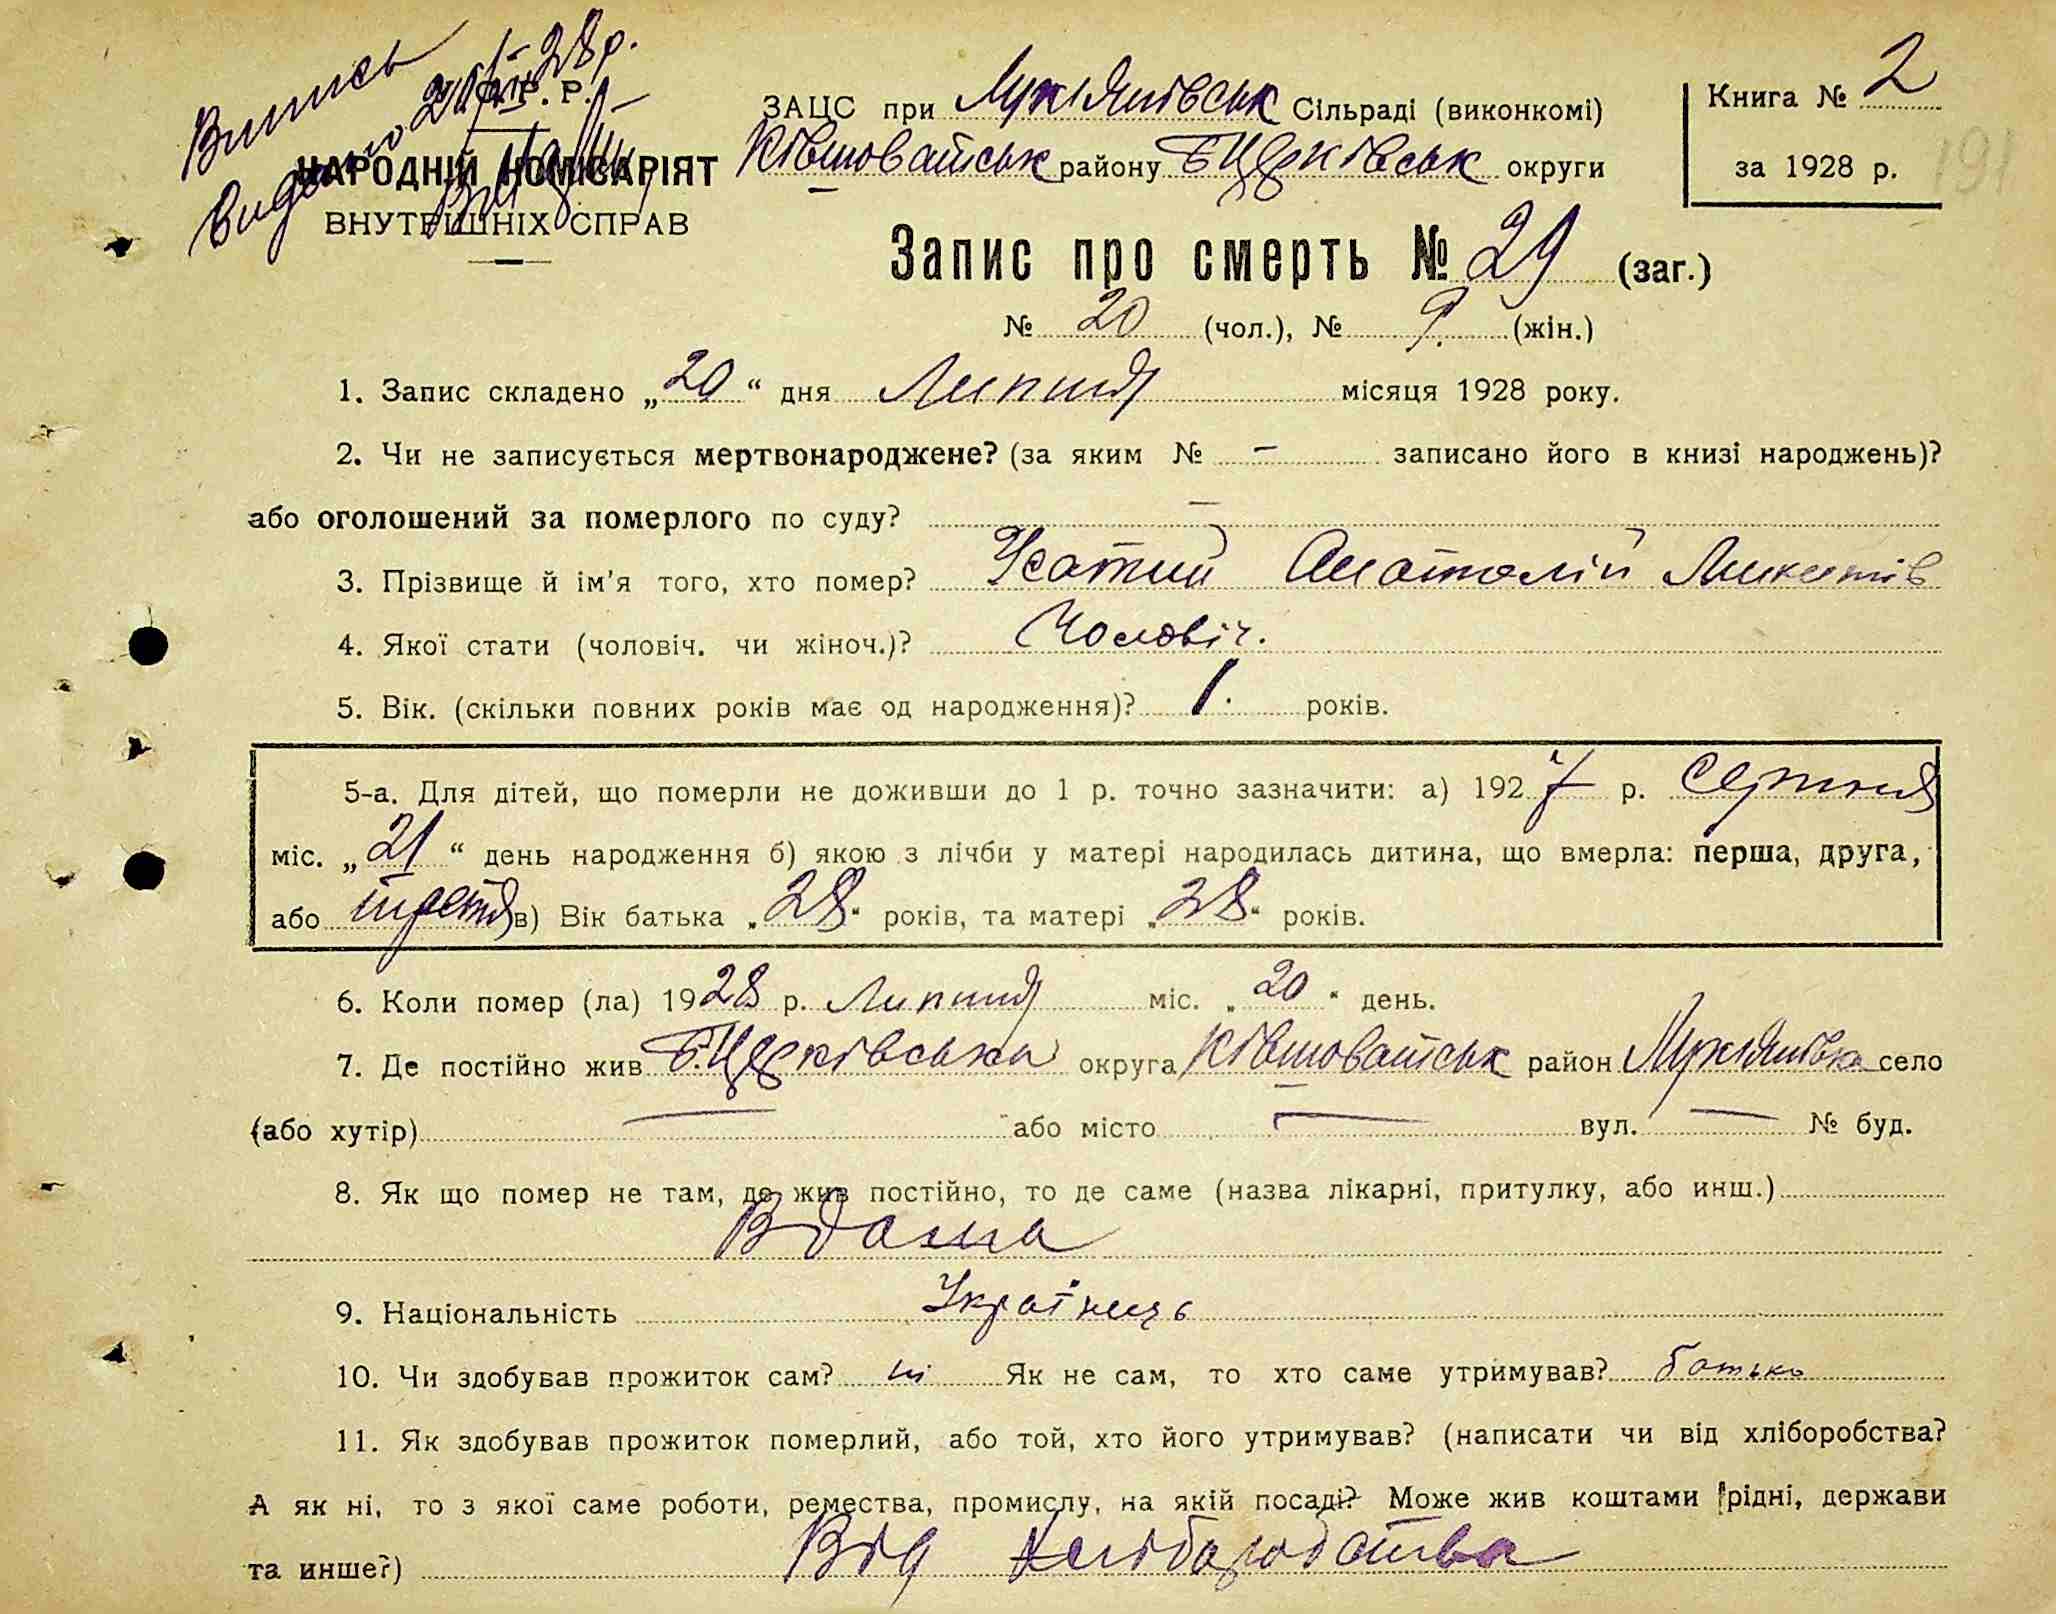 Випись
видано 21/VII 28 р.
У. С. Р. Р.
НАРОДНІЙ КОМІСАРІЯТ
ВНУТРІШНІХ СПРАВ
ЗАЦС при Лукіянівськ Сільраді (виконкомі)
Ківшоватськ району Б Церківськ округи
Книга № 2
за 1928 р.
191
Запис про смерть № 29 (заг.)
№ 20 (чол.), № 9. (жін.)
1. Запис складено „20“ дня Липня місяця 1928 року.
2. Чи не записується мертвонароджене? (за яким № – записано його в книзі народжень)?
або оголошений за померлого по суду? –
3. Прізвище й ім'я того, хто помер? Усатий Анатолій Микитів
4. Якої стати (чоловіч. чи жіноч.)? Чоловіч.
5. Вік. (скільки повних років має од народження)? 1. років.
5-а. Для дітей, що померли не доживши до 1 р. точно зазначити: а) 1927 р. Серпня
міс. „21“ день народження б) якою з лічби у матері народилась дитина, що вмерла: перша, друга,
або третя в) Вік батька „28“ років, та матері „28“ років.
6. Коли помер (ла) 1928 р. Липня міс. „20“ день.
7. Де постійно жив Б. Церківська округа Ківшоватськ район Лукіянівка село
(або хутір) – або місто – вул. – № буд.
8. Як що помер не там, де жив постійно, то де саме (назва лікарні, притулку, або инш.)
Вдома
9. Національність Українець
10. Чи здобував прожиток сам? ні Як не сам, то хто саме утримував? батько
11. Як здобував прожиток померлий, або той, хто його утримував? (написати чи від хліборобства?
А як ні, то з якої саме роботи, ремества, промислу, на якій посаді? Може жив коштами рідні, держави
та инше?) Від Хліборобства